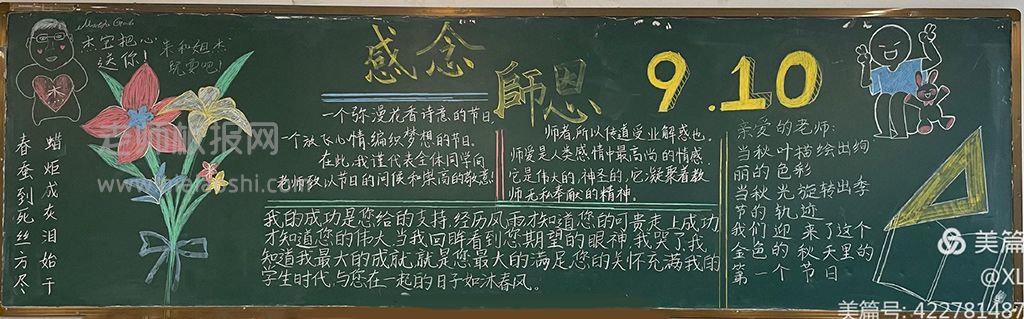 感念
師恩
9.10
杰宝把心
送你！
来和姐杰
玩耍吧！
春蚕到死丝方尽
蜡炬成灰泪始干
一个弥漫花香诗意的节日，
一个放飞心情编织梦想的节日。
在此，我谨代表全体同学向
老师致以节日的问候和崇高的敬意！
师者，所以传道受业解惑也，
师爱是人类感情中最高尚的情感。
它是伟大的，神圣的，它凝聚着教
师无私奉献的精神。
我的成功是您给的支持，经历风雨才知道您的可贵，走上成功
才知道您的伟大，当我回眸看到您期望的眼神，我哭了，我
知道我最大的成就，就是您最大的满足，您的关怀充满我的
学生时代，与您在一起的日子如沐春风。
亲爱的老师：
当秋叶描绘出绚
丽的色彩
当秋光旋转出季
节的轨迹
我们迎来了这个
金色的秋天里的
第一个节日
老师板报网
美篇
@XL
美篇号：422781487